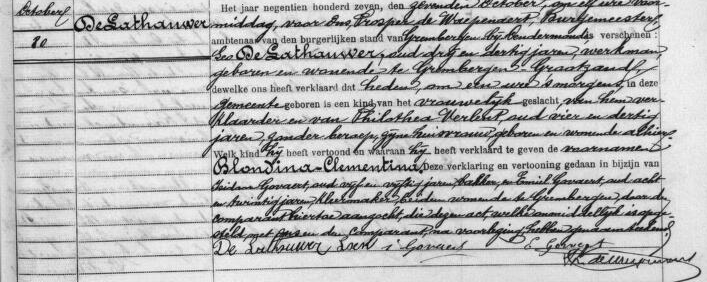 October
De Lathauwer
80
Het jaar negentien honderd zeven, den zevenden October, om elf ure voor-
middag, voor Ons Prosper de Waepenaert, Burgemeester,
ambtenaar van den burgerlijken stand van Grembergen bij Dendermonde, is verschenen:
Leo De Lathauwer, oud drij en dertig jaren, werkman,
geboren en wonende te Grembergen-Grootzand,
dewelke ons heeft verklaard dat heden, om een ure 's morgens, in deze
gemeente geboren is een kind van het vrouwelijk geslacht, van hem ver-
klaarder en van Philothea Verlent, oud vier en dertig
jaren, zonder beroep, zijne huisvrouw, geboren en wonende alhier
Welk kind hij heeft vertoond en waaraan hij heeft verklaard te geven de voornamen
Blondina-Clementina. Deze verklaring en vertooning gedaan in bijzijn van
Govaert, oud vijf en vijftig jaren, bakker, en Emiel Govaert, oud acht
en twintig jaren, kleermaker, beiden wonende te Grembergen, door de
comparant hiertoe aangezocht, die dezen act welke onmiddellijk is opge-
steld, met ons en den comparant, na voorlezing, hebben onderteekend.
De Lathauwer Leo i Govaert E. Govaert